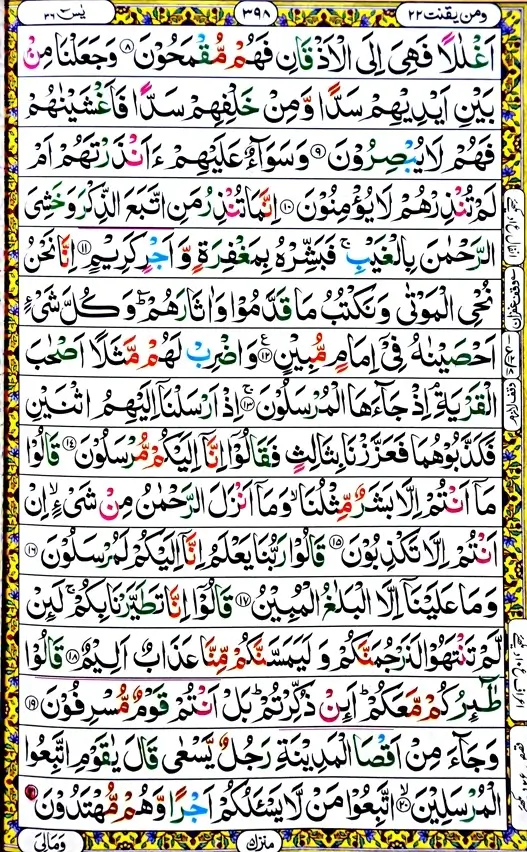 ومن یقنت ۲۲
۳۹۸
یٰسٓ ۳۶
اَغْلٰلًا فَهِیَ اِلَی الْاَذْقَانِ فَهُمْ مُّقْمَحُوْنَ ۸ وَجَعَلْنَا مِنْۢ
بَیْنِ اَیْدِیْهِمْ سَدًّا وَّمِنْ خَلْفِهِمْ سَدًّا فَاَغْشَیْنٰهُمْ
فَهُمْ لَا یُبْصِرُوْنَ ۹ وَسَوَآءٌ عَلَیْهِمْ ءَاَنْذَرْتَهُمْ اَمْ
لَمْ تُنْذِرْهُمْ لَا یُؤْمِنُوْنَ ۱۰ اِنَّمَا تُنْذِرُ مَنِ اتَّبَعَ الذِّكْرَ وَخَشِیَ
الرَّحْمٰنَ بِالْغَیْبِ ۚ فَبَشِّرْهُ بِمَغْفِرَةٍ وَّاَجْرٍ كَرِیْمٍ ۱۱ اِنَّا نَحْنُ
نُحْیِ الْمَوْتٰی وَنَكْتُبُ مَا قَدَّمُوْا وَاٰثَارَهُمْ ؕ وَكُلَّ شَیْءٍ
اَحْصَیْنٰهُ فِیْۤ اِمَامٍ مُّبِیْنٍ ۱۲ وَاضْرِبْ لَهُمْ مَّثَلًا اَصْحٰبَ
الْقَرْیَةِ ۘ اِذْ جَآءَهَا الْمُرْسَلُوْنَ ۱۳ اِذْ اَرْسَلْنَاۤ اِلَیْهِمُ اثْنَیْنِ
فَكَذَّبُوْهُمَا فَعَزَّزْنَا بِثَالِثٍ فَقَالُوْۤا اِنَّاۤ اِلَیْكُمْ مُّرْسَلُوْنَ ۱۴ قَالُوْا
مَاۤ اَنْتُمْ اِلَّا بَشَرٌ مِّثْلُنَا ۙ وَمَاۤ اَنْزَلَ الرَّحْمٰنُ مِنْ شَیْءٍ ۙ اِنْ
اَنْتُمْ اِلَّا تَكْذِبُوْنَ ۱۵ قَالُوْا رَبُّنَا یَعْلَمُ اِنَّاۤ اِلَیْكُمْ لَمُرْسَلُوْنَ ۱۶
وَمَا عَلَیْنَاۤ اِلَّا الْبَلٰغُ الْمُبِیْنُ ۱۷ قَالُوْۤا اِنَّا تَطَیَّرْنَا بِكُمْ ۚ لَىِٕنْ
لَّمْ تَنْتَهُوْا لَنَرْجُمَنَّكُمْ وَلَیَمَسَّنَّكُمْ مِّنَّا عَذَابٌ اَلِیْمٌ ۱۸ قَالُوْا
طَآىِٕرُكُمْ مَّعَكُمْ ؕ اَىِٕنْ ذُكِّرْتُمْ ؕ بَلْ اَنْتُمْ قَوْمٌ مُّسْرِفُوْنَ ۱۹
وَجَآءَ مِنْ اَقْصَا الْمَدِیْنَةِ رَجُلٌ یَّسْعٰی قَالَ یٰقَوْمِ اتَّبِعُوا
الْمُرْسَلِیْنَ ۲۰ اتَّبِعُوْا مَنْ لَّا یَسْـَٔلُكُمْ اَجْرًا وَّهُمْ مُّهْتَدُوْنَ
منزل ۵
ومالی